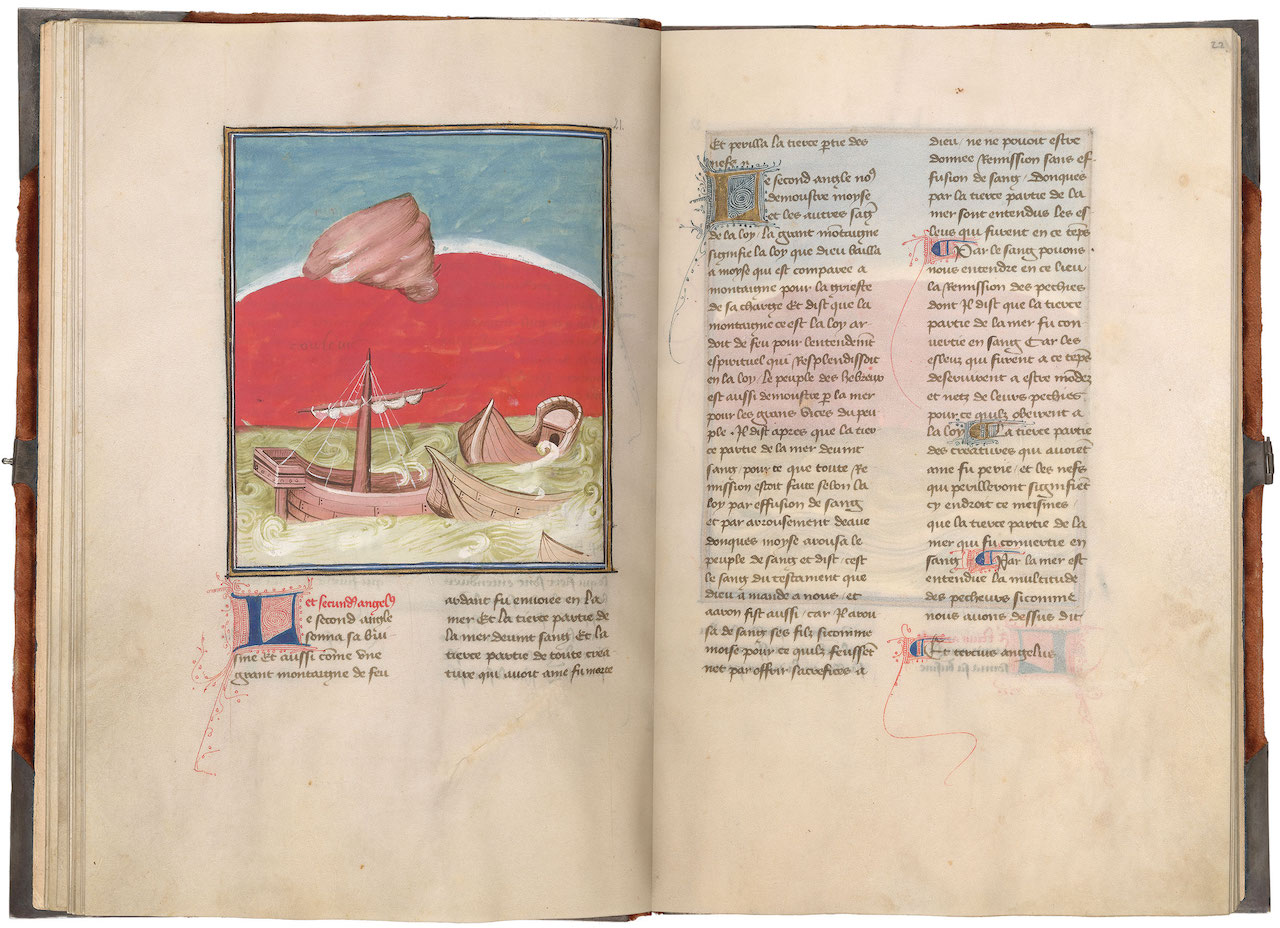 21.
et secund9 angel9
e second angle
sonna sa bui-
sine Et aussi cõme vne
grant montaigne de feu
ardant fu enuoiee en la
mer Et la tierce partie de
la mer deuint sang Et la
tierce partie de toute crea-
ture qui auoit ame fu morte
22
Et perilla la tierce ptie des
nefs
Le second angle no9
demoustre moyse
et les autres sag
de la loy / la grant montaigne
signifie la loy que dieu bailla
a moyse qui est comparee a
montaigne pour la griefte
de sa charge Et dist que la
montaigne cest la loy ar
doit de feu pour lentendemt
espirituel qui Resplendissoit
en la loy / Le peuple des hebreux
est aussi demoustre p la mer
pour les grans vices du peu
ple . Il dist apres que la tier
ce partie de la mer deuint
sang / pour ce que toute Re
mission estoit faite selon la
loy par effusion de sang
et par arrousement deaue
donques moyse arousa le
peuple de sang et dist / cest
le sang du testament que
dieu a mande a nous / et
aaron fist aussi / car Il arou
sa de sang ses filz sicomme
moise pour ce quilz feussent
net par offrir sacrefices a
dieu / ne ne pouoit estre
donnee Remission sans ef-
fusion de sang / Donques
par la tierce partie de la
mer sont entendus les es
leus qui furent en ce teps
Par le sang pouons
nous entendre en ce lieu
la Remission des pechies
dont Il dist que la tierce
partie de la mer fu con
uertie en sang Car les
esleuz qui furent a ce teps
deseruirent a estre mõdez
et netz de leurs pechies
pour ce quilz obeirent a
la loy La tierce partie
des creatures qui auoiet
ame fu perie / et les nefs
qui perillerent signifiet
cy endroit ce meismes /
que la tierce partie de la
mer qui fu conuertie en
sang Par la mer est
entendue la multitude
des pecheurs sicomme
nous auons dessus dit
Et tercius angelus